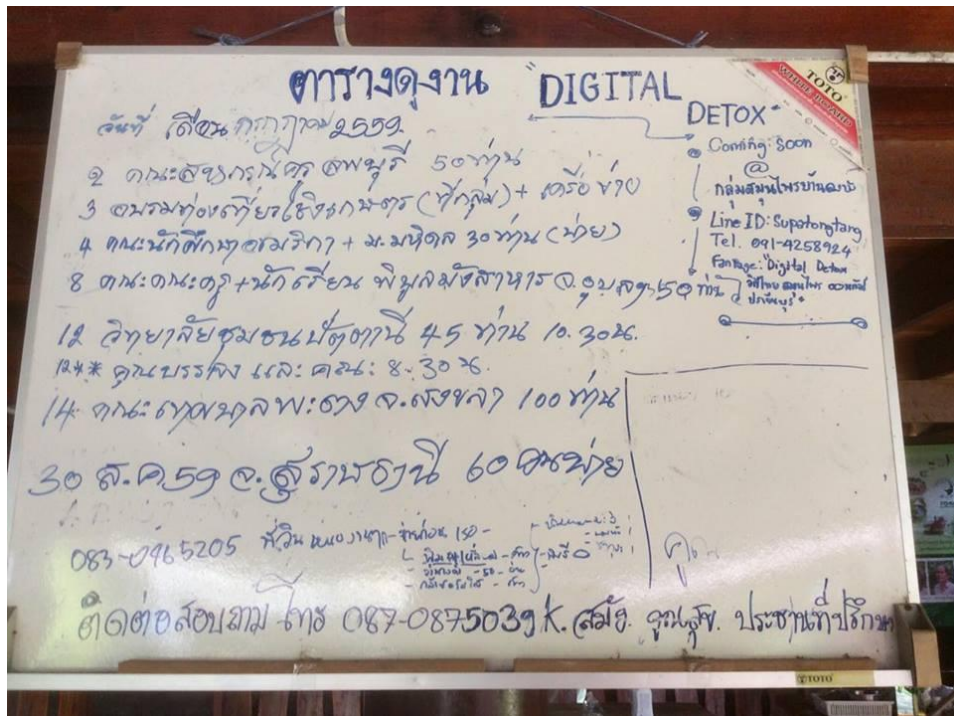 ตารางดูงาน
"DIGITAL DETOX"
วันที่ เดือน กรกฎาคม 2559
2 คณะสหกรณ์ครู ลพบุรี 50 ท่าน
3 อบรมท่องเที่ยวเชิงเกษตร (ที่กลุ่ม) + เครือข่าย
4 คณะนักศึกษาอเมริกา + ม.มหิดล 30 ท่าน (บ่าย)
8 คณะคณะครู + นักเรียน พิบูลมังสาหาร จ.อุบลฯ 150 ท่าน
12 วิทยาลัยชุมชนปัตตานี 45 ท่าน 10.30 น.
12** คุณบรรจง และคณะ 8.30 น.
14 คณะเทศบาลพะตง จ.สงขลา 100 ท่าน
30 ส.ค 59 จ.สุราษธานี 60 คน บ่าย
083-0465205
ติดต่อสอบถาม โทร 087-0875039 K. สมัย คูณสุข ประธานที่ปรึกษา
Coming: Soon
@
กลุ่มสมุนไพรบ้านดงบัง
Line ID: Supatongtang
Tel. 091-4258924
Fanpage: "Digital Detox
วิถีไทย สมุนไพร
ปราจีนบุรี"
TOTO
WHITE BOARD
TOTO